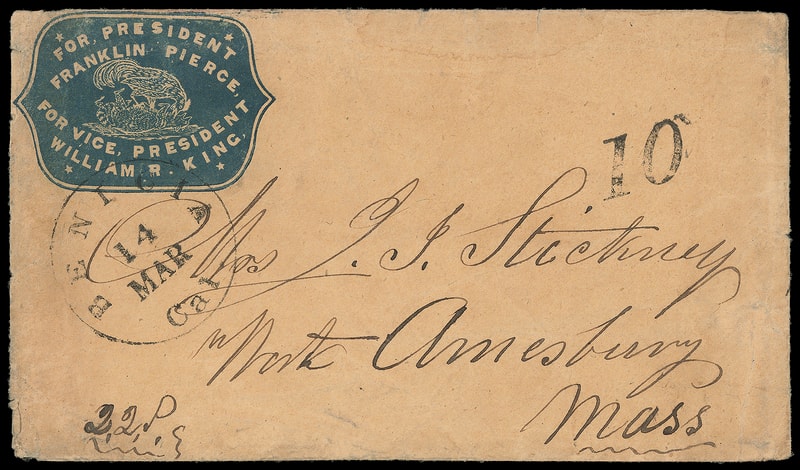 FOR PRESIDENT
FRANKLIN PIERCE,
FOR VICE, PRESIDENT
WILLIAM R. KING,
BENICIA
14
MAR
Cal
10
Mrs J. J. Stickney
West Amesbury
Mass
22